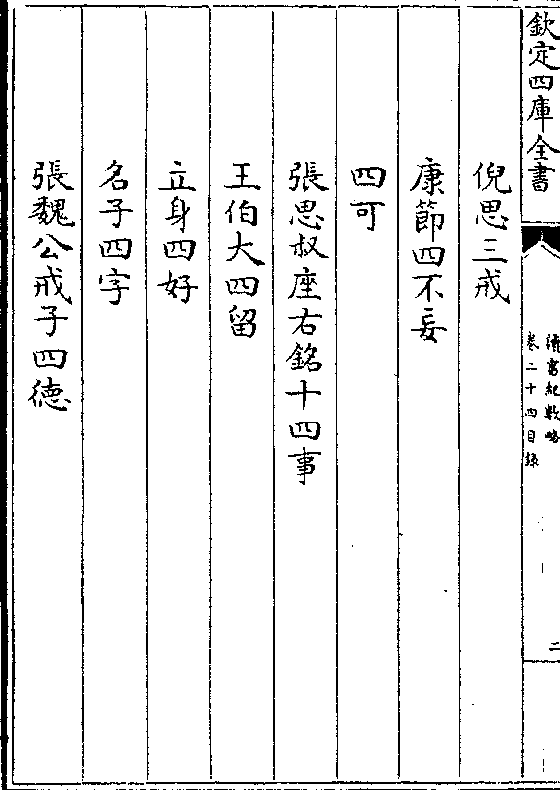 欽定四庫全書
讀書紀數略
卷二十四目錄
二
倪思三戒
康節四不妄
四可
張思叔座右銘十四事
王伯大四留
立身四好
名子四字
張魏公戒子四德